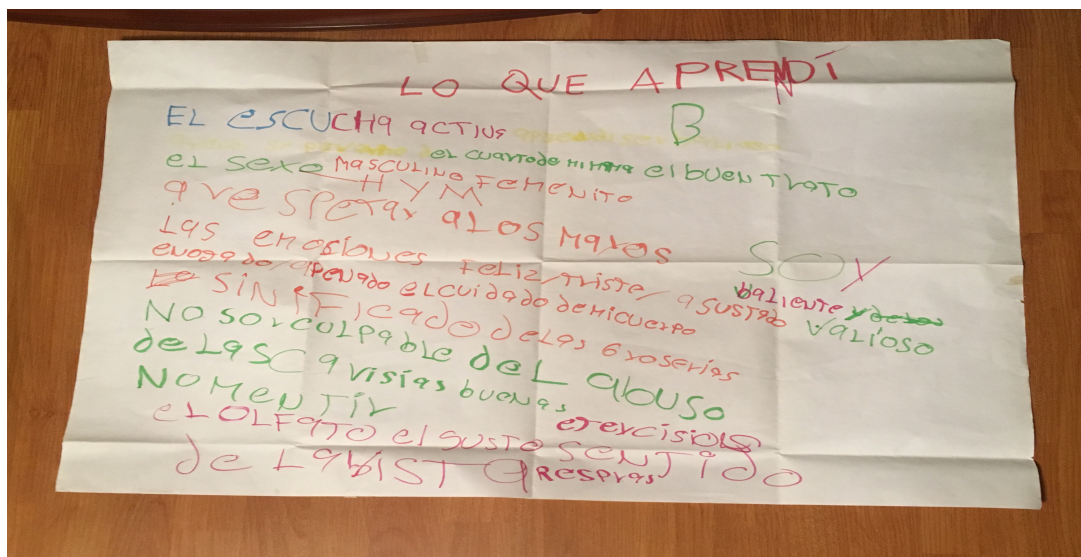 LO QUE APRENDÍ
B
EL eSCUCHA ACTIVA
el cuarto de mi mama el bueN TraTo
eL sexo MasCULINO FeMeNiTo
H Y M
a respeTar aLOS Mayos
Las emosiones FeLiz/Triste/asusTado
enogado/apenado el cuidado de mi cuerpo
SOY
valiente
valioso
SINiFicado de Las Groserias
No soy culpable deL abuso
de Las Cavisias buenas
NO MeNTir
eJercisios
eL OLFaTo el gusTo SeNTido
de La bisTa Respiras